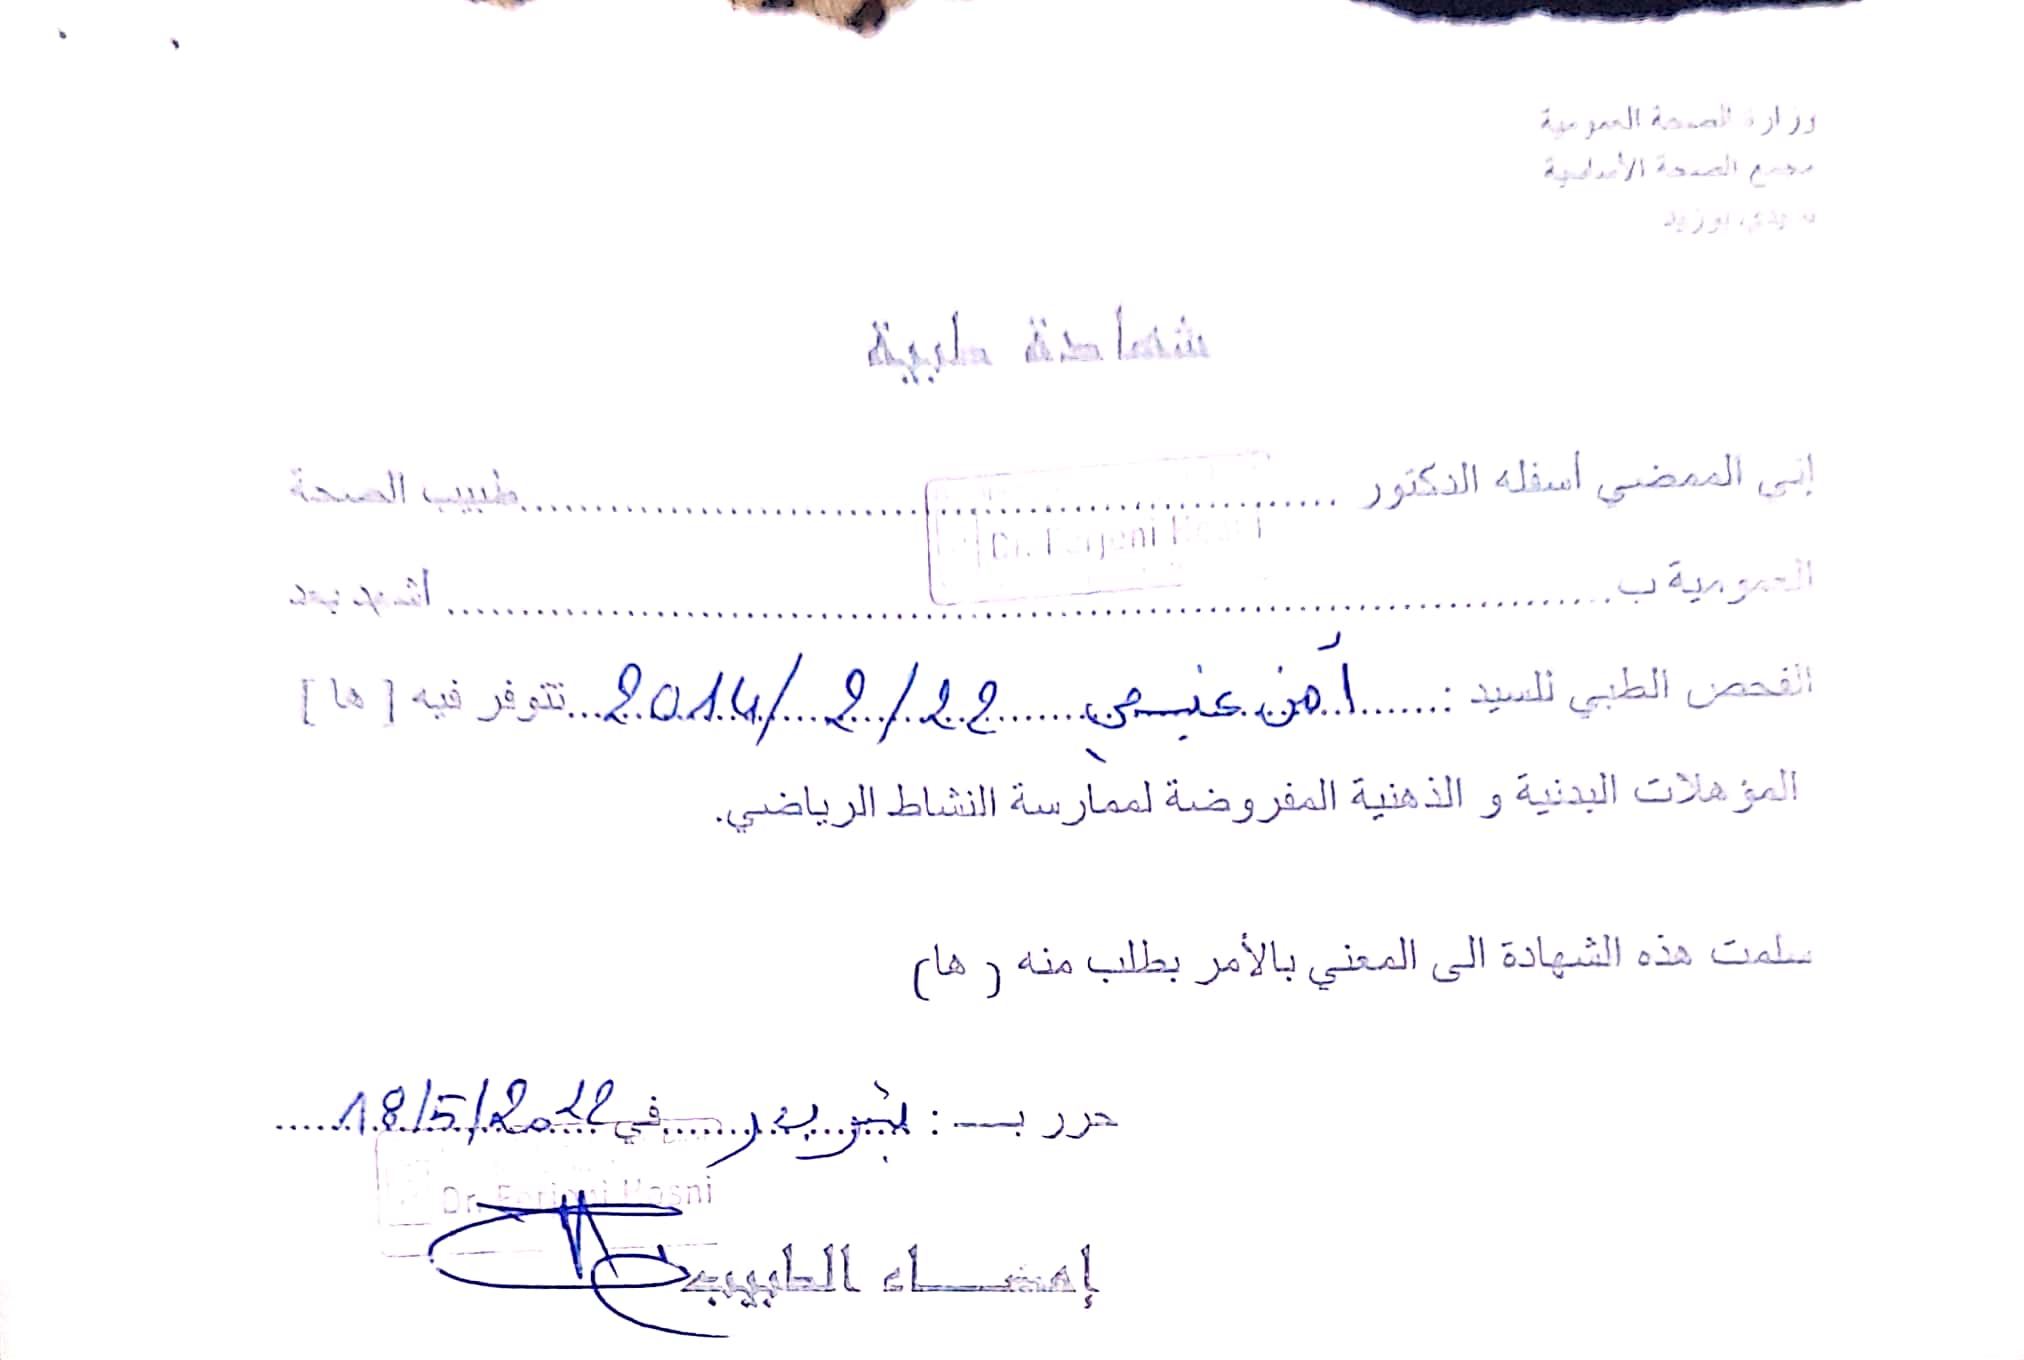 وزارة الصحة العمومية
مجمع الصحة الأساسية
سيدي بوزيد
شهادة طبية
إني الممضي أسفله الدكتور ........ طبيب الصحة
Dr. Ferjeni Hosni
العمومية ب ........ أشهد بعد
الفحص الطبي للسيد : ..... 22/2/2014 ... تتوفر فيه [ ها ]
المؤهلات البدنية و الذهنية المفروضة لممارسة النشاط الرياضي.
سلمت هذه الشهادة الى المعني بالأمر بطلب منه ( ها)
حرر بـ : ........ في 18/5/2022
Dr. Ferjeni Hosni
إمضاء الطبيب